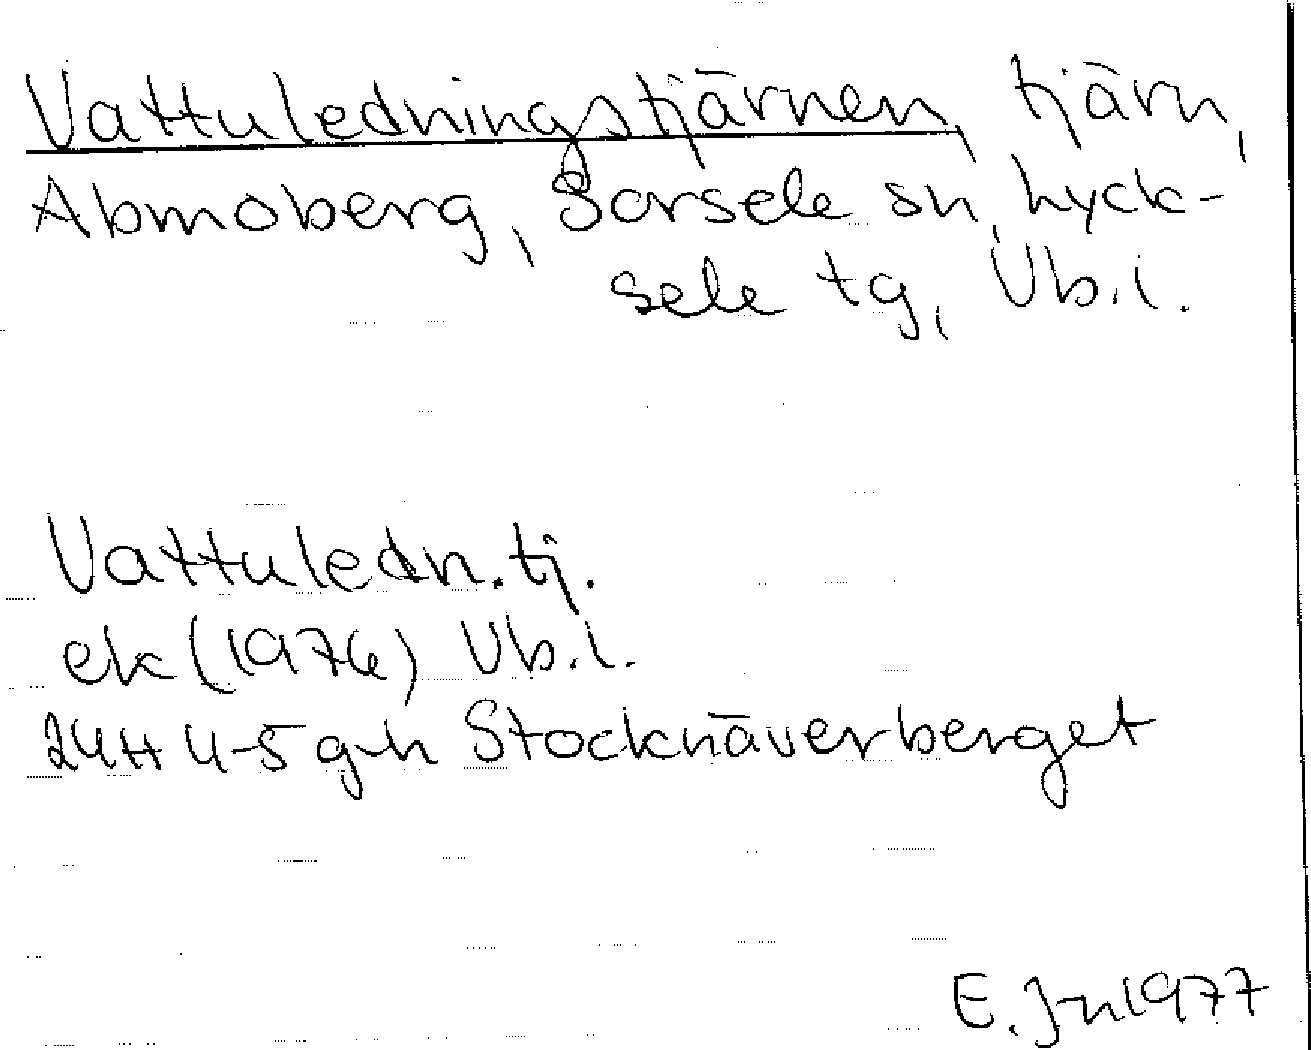 Vattuledningstjärnen, tjärn,
Abmoberg, Sorsele sn, Lyck-
sele tg, Vb.l.
Vattuledn.tj.
ek (1976) Vb.l.
24H 4-5 g-h Stocknäverberget
E. Jn 1977